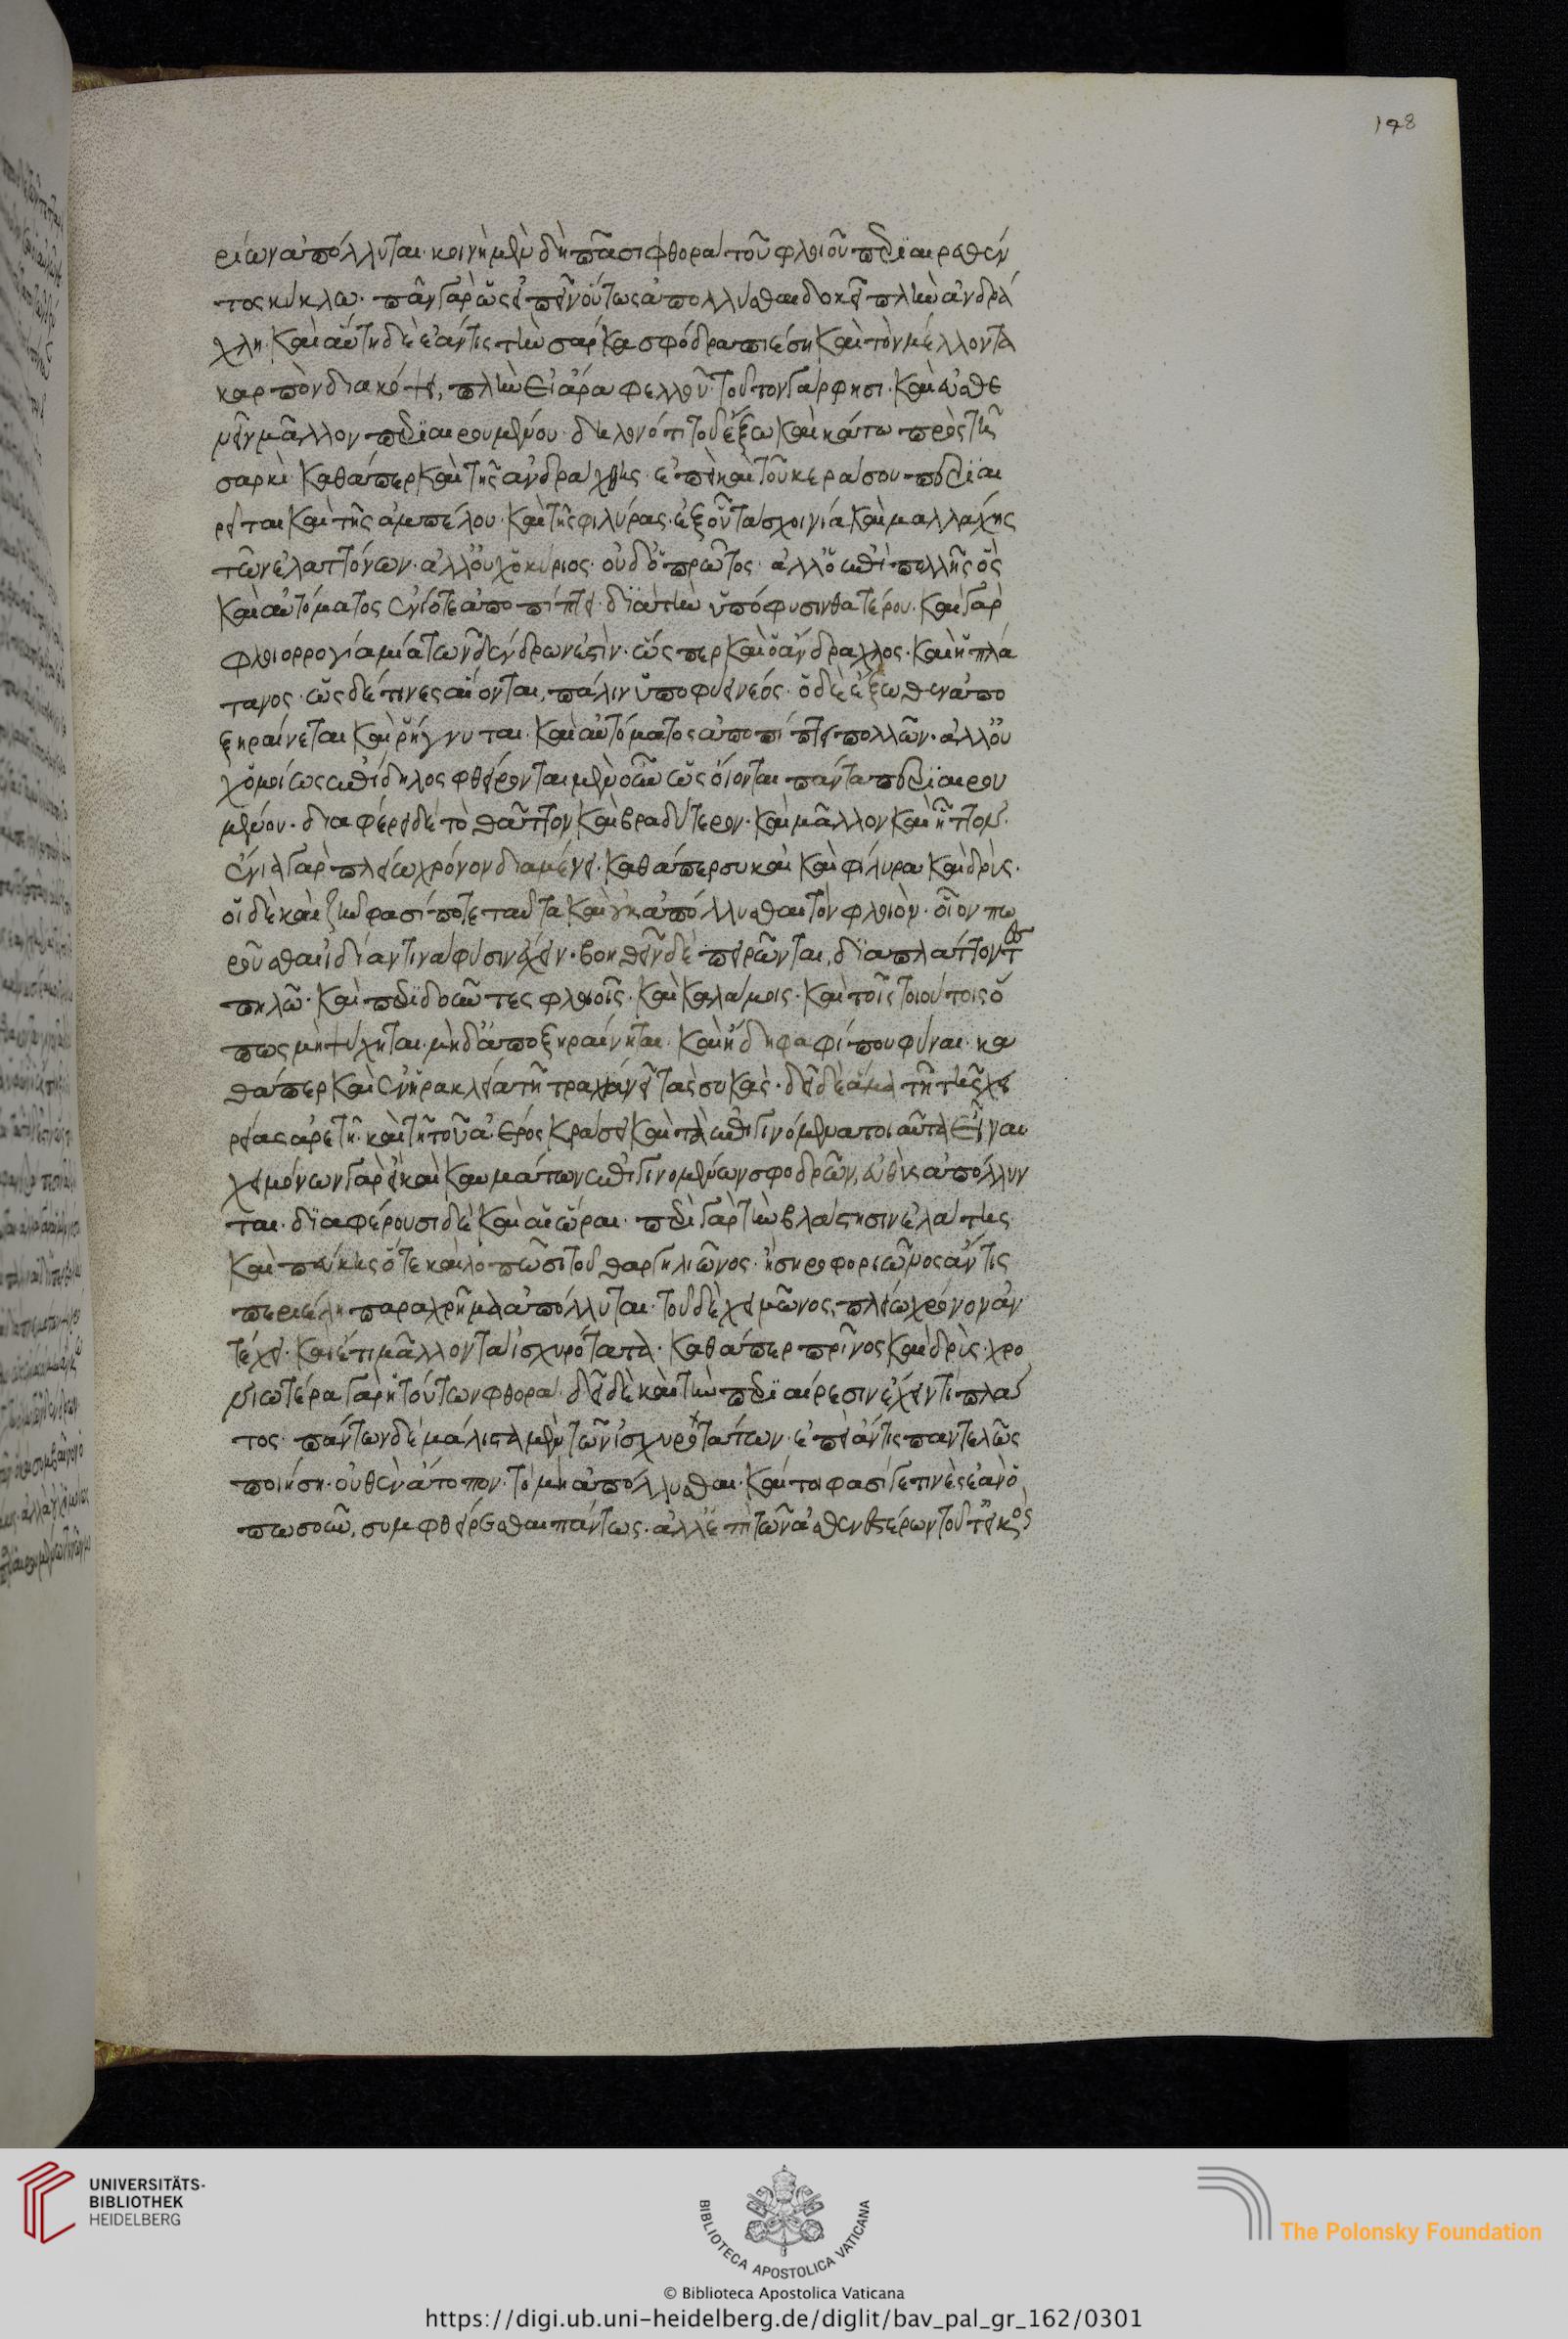 ρίων ἀπόλλυται· κοινὴ μὲν δὴ πᾶσι φθορὰ τοῦ φλοιοῦ περιαιρεθέν
τος κύκλω· πᾶν γὰρ ὡς εἰπεῖν οὕτως ἀπόλλυσθαι δοκεῖ πλὴν ἀνδρά
χλη· καὶ αὕτη δὲ ἐάν τις τὴν σάρκα σφόδρα πιέση καὶ τὸν μέλλοντα
καρπὸν διακόψει, πλὴν εἰ ἄρα φελλοῦ· τοῦτον γάρ φησι· καὶ εὐσθε
νεῖν μᾶλλον περιαιρουμένου· δηλονότι τοῦ ἔξω καὶ κάτω πρὸς τῆ
σαρκὶ καθάπερ καὶ τῆς ἀνδράχλης· ἐπεὶ καὶ τοῦ κεράσου περιαι
ρεῖται καὶ τῆς ἀμπέλου· καὶ τῆς φιλύρας· ἐξ οὗ τὰ σχοινία καὶ μαλλάχης
τῶν ἐλαττόνων· ἀλλ' οὐχ ὁ κύριος· οὐδ' ὁ πρῶτος· ἀλλ' ὁ ἐπιπολλῆς ὃς
καὶ αὐτόματος ἐνίοτε ἀποπίπτει· διὰ τὴν ὑπόφυσιν θατέρου· καὶ γὰρ
φλοιορρογία μία τῶν δένδρων ἐστὶν· ὥσπερ καὶ ὁ ἄνδραχλος· καὶ ἡ πλά
τανος· ὡς δέ τινες οἴονται, πάλιν ὑποφύει νέος· ὁ δὲ ἔξωθεν ἀπο
ξηραίνεται καὶ ῥήγνυται· καὶ αὐτόματος ἀποπίπτει πολλῶν· ἀλλ' οὐ
χ ὁμοίως ἐπίδηλος φθείρονται μὲν οὖν ὡς οἴονται πάντα περιαιρου
μένου· διαφέρει δὲ τὸ θᾶττον καὶ βραδύτερον· καὶ μᾶλλον καὶ ἧττον·
ἔνια γὰρ πλείω χρόνον διαμένει· καθάπερ συκῆ καὶ φίλυρα καὶ δρῦς·
οἱ δὲ καὶ ζῆν φασί ποτε ταῦτα καὶ οὐκ ἀπόλλυσθαι τὸν φλοιὸν· οἷον πω
ροῦσθαι ἰδίαν τινὰ φύσιν ἔχειν· βοηθεῖν δὲ πειρῶνται, διαπλάττοντες
πηλῶ· καὶ περιδοῦντες φλοιοῖς· καὶ καλάμοις· καὶ τοῖς τοιούτοις ὅ
πως μὴ ψύχηται· μὴδ' ἀποξηραίνηται· καὶ ἤδη φαφί που φῦναι· κα
θάπερ καὶ ἐν ἡρακλεία τῆ τραχινεῖ τὰς συκᾶς· δεῖ δὲ ἅμα τῆ τῆς χώ
ρας ἀρετῆ· καὶ τῆ τοῦ ἀέρος κράσει καὶ τὰ ἐπιγινόμενα τοιαῦτα εἶναι
χειμόνων γὰρ εἰ καὶ καυμάτων ἐπιγινομένων σφοδρῶν, εὐθὺς ἀπόλλυν
ται· διαφέρουσι δὲ καὶ αἱ ὧραι· περὶ γὰρ τὴν βλάστησιν ἐλάτης
καὶ πεύκης ὅτε καὶ λοπῶσι τοῦ θαργηλιῶνος· ἢ σκιροφοριῶνος ἄν τις
περιέλη παραχρῆμα ἀπόλλυται· τοῦ δὲ χειμῶνος, πλείω χρόνον ἀν
τέχει· καὶ ἔτι μᾶλλον τὰ ἰσχυρότατα· καθάπερ πρῖνος καὶ δρῦς· χρο
νιωτέρα γὰρ ἡ τούτων φθορά· δεῖ δὲ καὶ τὴν περιαίρεσιν ἔχειν τι πλά
τος· πάντων δὲ μάλιστα μὲν τῶν ἰσχυροτάτων· ἐπεὶ ἄν τις παντελῶς
ποιήση· οὐθὲν ἄτοπον· τὸ μὴ ἀπόλλυσθαι· καίτοι φασί γε τινὲς ἐὰν ὁ
πωσοῦν, συμφθείρεσθαι πάντως· ἀλλ' ἐπὶ τῶν ἀσθενεστέρων τοῦτ' εἰκὸς
198
UNIVERSITÄTS-
BIBLIOTHEK
HEIDELBERG
BIBLIOTECA APOSTOLICA VATICANA
The Polonsky Foundation
© Biblioteca Apostolica Vaticana
https://digi.ub.uni-heidelberg.de/diglit/bav_pal_gr_162/0301